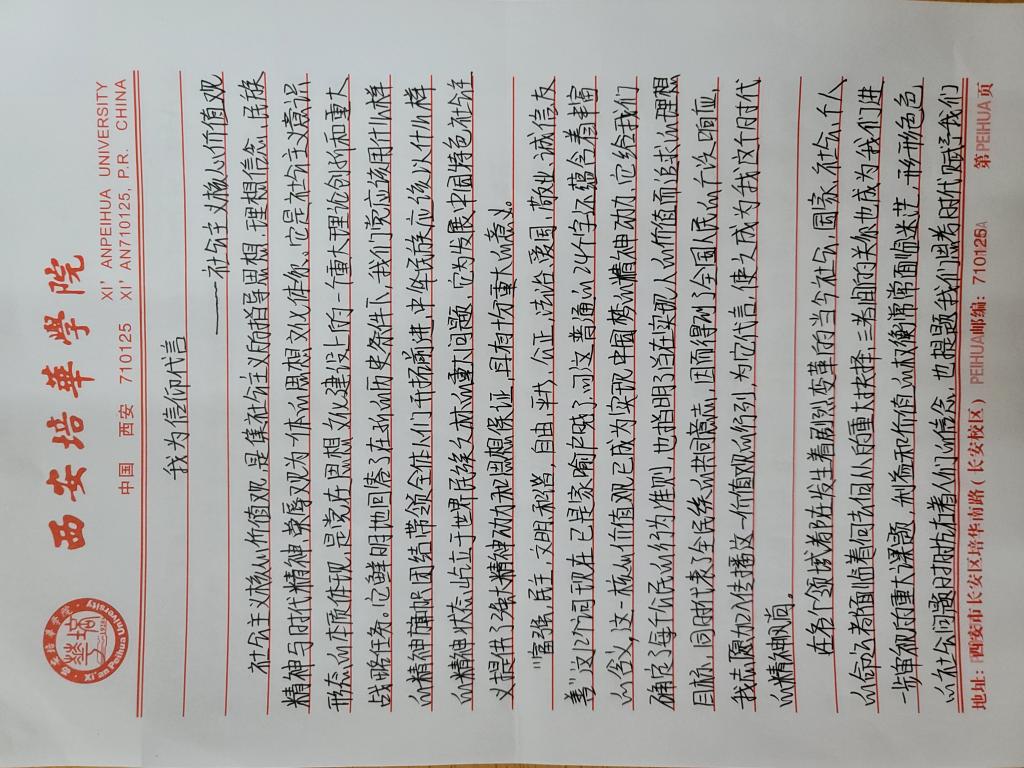 西安培華學院
中国 西安 710125 XI'ANPEIHUA UNIVERSITY
XI'AN710125, P.R. CHINA
西安培华学院
Xi'an Peihua University
我为信仰代言
——社会主义核心价值观
社会主义核心价值观,是集社会主义所指导思想、理想信念、民族
精神与时代精神、荣辱观为一体的思想文化体系。它是社会主义意识
形态的本质体现,是党在思想文化建设上的一重大理论创新和重大
战略任务。它鲜明地回答了在新的历史条件下,我们党应该用什么样
的精神旗帜团结带领全体人们开拓前进,中华民族应该以什么样
的精神状态屹立于世界民族之林的重大问题,它为发展中国特色社会主
义提供了强大精神动力和思想保证,具有均重大的意义。
“富强、民主、文明、和谐,自由、平等、公正、法治,爱国、敬业、诚信、友
善”这12个词现在已是家喻户晓了,问这普通的24个字又蕴含着丰富
的含义,这一核心价值观已成为实现中国梦的精神动力,它给我们
确定了每个公民的行为准则,也指明了当在实现人的价值而追求的理想
目标,同时代表了全民系的共同意志,因而得到了全国人民的广泛响应,
我志愿加入传播这一价值观的你列,为它代言,使之成为我这个时代
的精神脚印。
在各个领域都在发生着剧烈变革的当今社会,国家、社会、个人
的命运者都面临着何去何从的重大抉择,三者间的关系也成为我们进
一步审视的重大课题,利益和价值的权衡常常面临迷茫,形形色色
的社会问题时时拷打着人们的信念,也提题我们思考时代赋予我们
地址:西安市长安区培华南路(长安校区) PEIHUA邮编:710125 第PEIHUA页